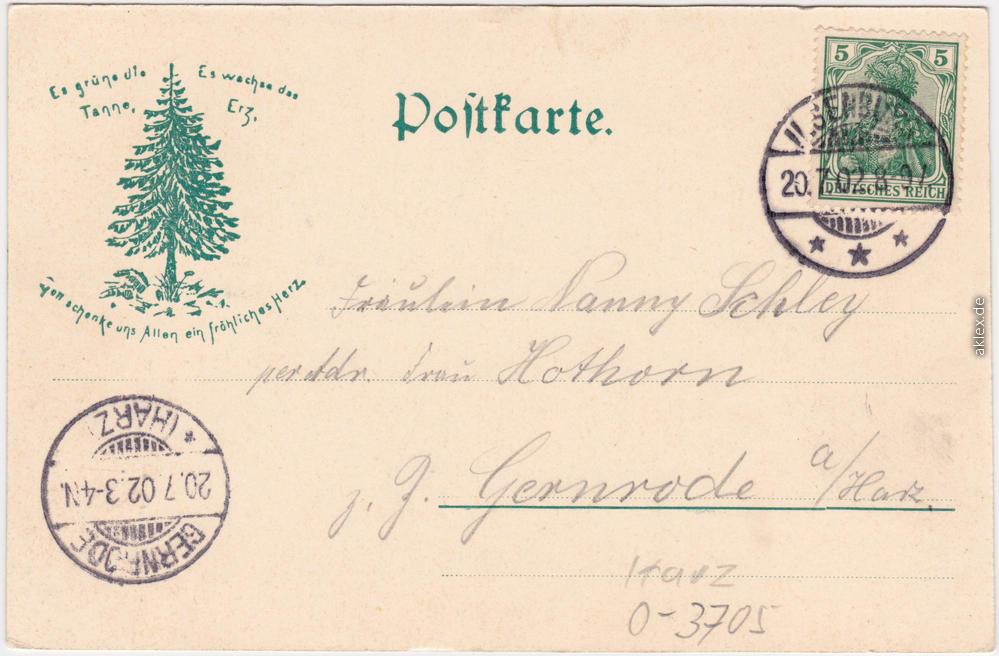 Es grüne die Tanne,
Es wachse das Erz,
Gott schenke uns Allen ein fröhliches Herz.
Postkarte.
5 5
DEUTSCHES REICH
20.7.02.8-9V.
Fräulein Nanny Schley
per Adr. Frau Hothorn
z. Z. Gernrode a/Harz.
GERNRODE
20.7.02.3-4N.
* (HARZ)
Harz
O-3705
aklex.de